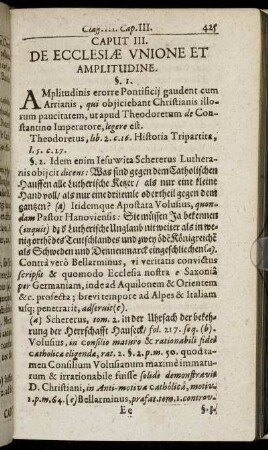 Cap. III. 425
CAPUT III.
DE ECCLESIÆ VNIONE ET
AMPLITUDINE.
§. 1.
AMplitudinis errore Pontificij gaudent cum
Arrianis, qui objiciebant Christianis illo-
rum paucitatem, ut apud Theodoretum de Con-
stantino Imperatore, legere est.
Theodoretus, lib. 2. c. 16. Historia Tripartita,
l. 5. c. 17.
§. 2. Idem enim Iesuvvita Schererus Luthera-
nis objicit dicens: Was sind gegen dem Catholischen
Hauffen alle Lutherische Ketzer / als nur eine kleine
Hand voll / als nur eine dritteníle oder theil gegen dem
gantzen? (a) Itidemque Apostata Volusius, quon-
dam Pastor Hanoviensis: Sie müssen Ja bekennen
(inquit) daß der Lutherische Unglaub nit weiter als in we-
nig örth des Teutschlandes und zwey öde Königreiche
als Schweden und Dennemarck eingeschlichen / (b)
Contrà verò Bellarminus, ei veritatis convictus
scripsit & quomodo Ecclesia nostra e Saxonia
per Germaniam, inde ad Aquilonem & Orientem
&c. profecta; brevi tempore ad Alpes & Italiam
usq; penetrarit, adseruit (c).
(a) Schererus, tom. 2. in der Ursach der bekeh-
rung der Herrschafft Hauseck / fol. 217. seq. (b).
Volusius, in consilio maturo & rationabili fidei
catholica eligendæ, rat. 2. §. 2. p. m. 50. quod ta-
men Consilium Volusianum maximè immatu-
rum & irrationabile fuisse solidè demonstravit
D. Christiani, in Anti-motivâ Catholicâ, motiv.
1. p. m. 64. (c) Bellarminus, præfat. tom. 1. controv.
Ee §. 3.